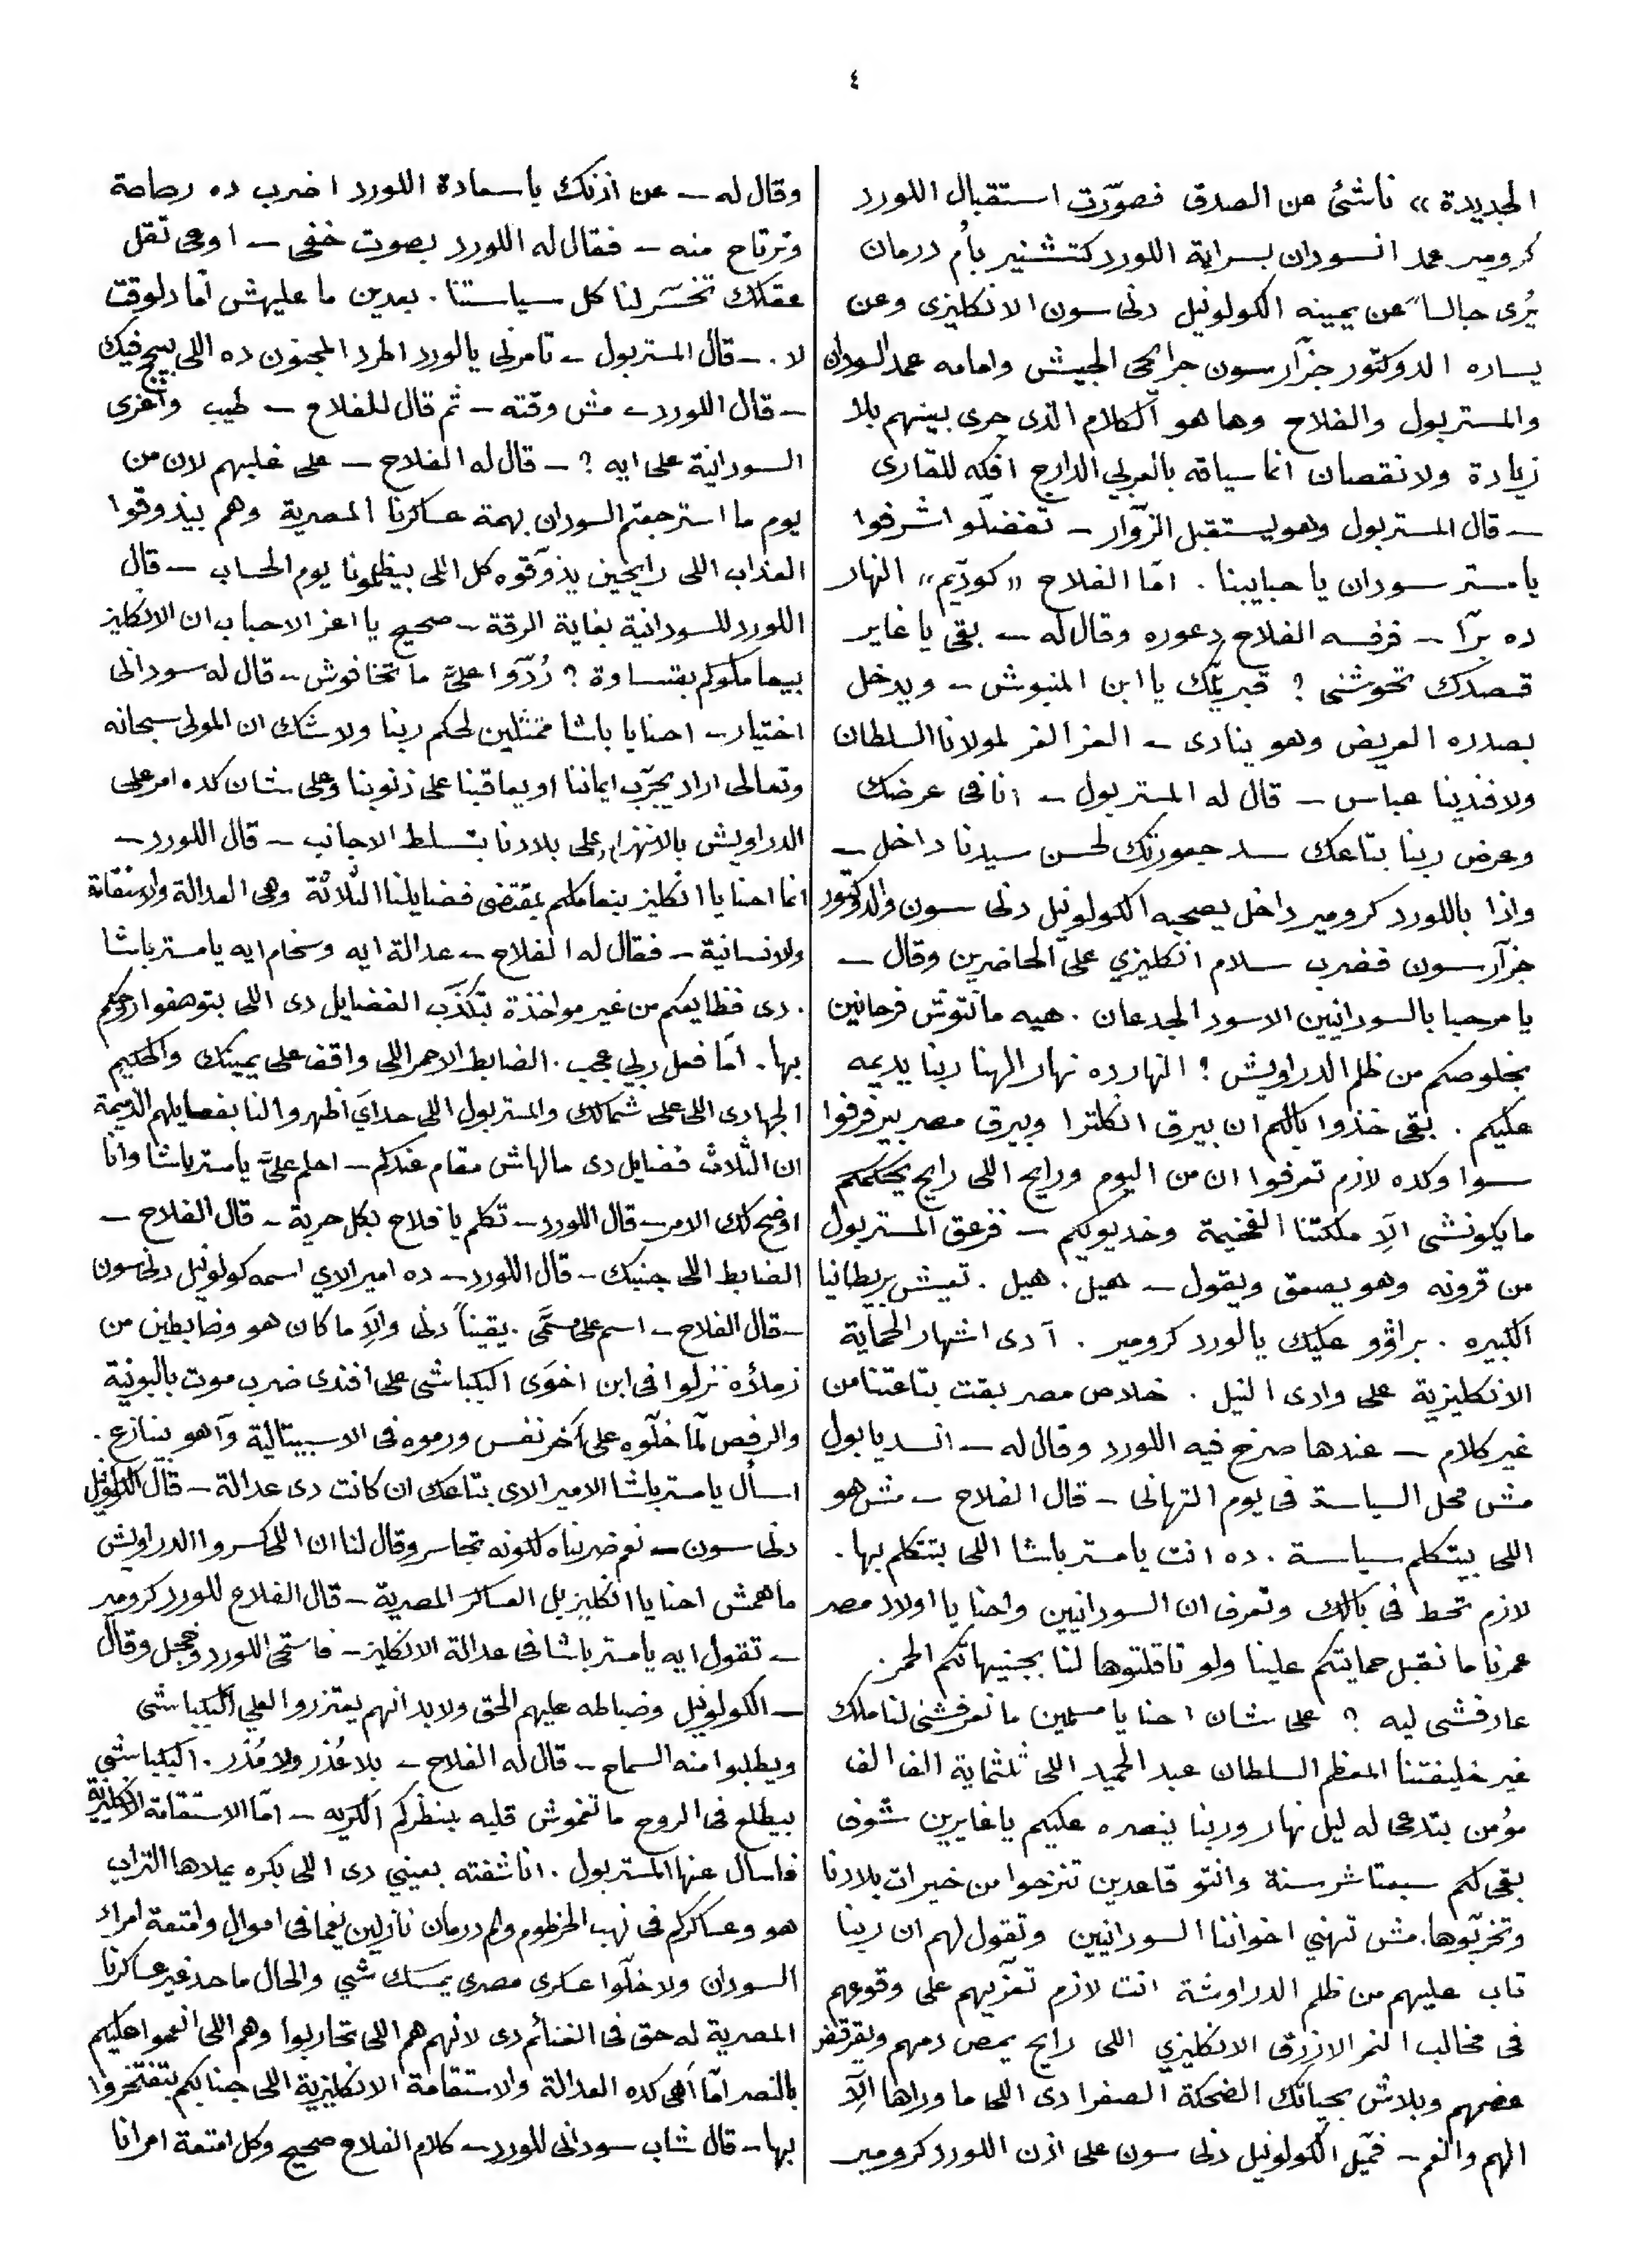 ٤
الجديدة» ناشئ عن الصدق فصوّرت استقبال اللورد
كرومير عمد السودان بسراية اللورد كتتشنير بأم درمان
يُرى جالساً عن يمينه الكولونيل دنى سون الانكليزى وعن
يساره الدوكتور جزّارسون جرايحى الجيش وامامه عمد السودان
والمستر بول والفلاح وها هو الكلام الذى جرى بينهم بلا
زيادة ولا نقصان انما سياقه بالعربي الدارج افكه للقارى
— قال المستر بول وهو يستقبل الزوّار — تفضلّو اشرفوا
يا مستر سودان يا حبايبنا . امّا الفلاح «كودّيم» النهار
ده برّا — فرفسه الفلاح دعوره وقال له — بقى يا غاير
قصدك تحوشنى ؟ قبر يلمّك يا ابن المنبوش — ويدخل
بصدره العريض وهو ينادى — العز العز لمولانا السلطان
ولافندينا عباس — قال له المستر بول — انا فى عرضك
وعرض ربنا بتاعك سد جعورتك لحسن سيدنا داخل —
واذا باللورد كرومير داخل يصحبه الكولونيل دنى سون والدوكتور
جزّارسون فضرب سلام انكليزي على الحاضرين وقال —
يا مرحبا بالسودانيين الاسود الجدعان . هيه مانتوش فرحانين
بخلوصكم من ظلم الدراويش ؟ النهارده نهار الهنا ربنا يديمه
عليكم . بقى خذوا بالكم ان بيرق انكلترا وبيرق مصر بيرفرفوا
سوا وكده لازم تعرفوا ان من اليوم ورايح اللى رايح يحكمكم
ما يكونشى الّا ملكتنا الفخيمة وخديويكم — فزعق المستر بول
من قرونه وهو يصعق ويقول — هيل . هيل . تعيش بريطانيا
الكبيره . براڤو عليك يا لورد كرومير . آدى اشهار الحماية
الانكليزية على وادى النيل . خلاص مصر بقت بتاعتنا من
غير كلام — عندها صرخ فيه اللورد وقال له — انسد يا بول
مش محل السياسة فى يوم التهانى — قال الفلاح — مش هو
اللى بيتكلم سياسة . ده انت يا مستر باشا اللى بتتكلم بها .
لازم تحط فى بالك وتعرف ان السودانيين واحنا يا اولاد مصر
عمرنا ما نقبل حمايتكم علينا ولو تاقلتوها لنا بجنيهاتكم الحمر
عارفشى ليه ؟ على شان احنا يا مسلمين ما نعرفشى لنا ملك
غير خليفتنا المعظم السلطان عبد الحميد اللى ثلثماية الف الف
مؤمن بتدعى له ليل نهار وربنا ينصره عليكم يا غايرين شوف
بقى لكم سبعتاشر سنة وانتو قاعدين تنزحوا من خيرات بلادنا
وتخرّبوها . مش تهني اخواننا السودانيين وتقول لهم ان ربنا
تاب عليهم من ظلم الدراوشة انت لازم تعزّيهم على وقوعهم
فى مخالب النمر الازرق الانكليزي اللى رايح يمص دمهم ويقرقض
عضمهم وبلاش بحياتك الضحكة الصفرا دى اللى ما وراها الّا
الهم والغم — فميّل الكولونيل دنى سون على اذن اللورد كرومير
وقال له — عن اذنك يا سعادة اللورد اضرب ده رصاصة
وترتاح منه — فقال له اللورد بصوت خفى — اوعى تقل
عقلك تخسّر لنا كل سياستنا . بعدين ما عليهش أما دلوقت
لا . — قال المستر بول — تامرنى يا لورد اطرد المجنون ده اللى بيبجح فيك
— قال اللورد — مش وقته — ثم قال للفلاح — طيب وأعزى
السودانية على ايه ؟ — قال له الفلاح — على غلبهم لان من
يوم ما استرجعتم السودان بهمة عساكرنا المصرية وهم بيذوقوا
العذاب اللى رايحين يذوّقوه كل اللى بيظلمونا يوم الحساب — قال
اللورد للسودانية بغاية الرقة — صحيح يا اعز الاحباب ان الانكليز
بيعاملوكم بقساوة ؟ رُدّوا علىَّ ما تخافوش — قال له سودانى
اختيار — احنا يا باشا ممتثلين لحكم ربنا ولا شك ان المولى سبحانه
وتعالى اراد يجرّب ايماننا او يعاقبنا على ذنوبنا وعلى شان كده امر على
الدراويش بالانهزام وعلى بلادنا بتسلط الاجانب — قال اللورد —
انما احنا يا انكليز بنعاملكم بمقتضى فضايلنا الثلاثة وهى العدالة والاستقامة
والانسانية — فقال له الفلاح — عدالة ايه وسخام ايه يا مستر باشا
. دى فظايعكم من غير مواخذة بتكذّب الفضايل دى اللى بتوهفوا ارواحكم
بها . امّا فعل ربي عجب . الضابط الاحمر اللى واقف على يمينك والحكيم
الجهادى اللى على شمالك والمستر بول اللى حداي اظهروا لنا بفعايلهم الذميمة
ان الثلاث فضايل دى مالهاش مقام عندكم — احلم علىَّ يا مستر باشا وانا
اوضح لك الامر — قال اللورد — تكلم يا فلاح بكل حرية — قال الفلاح —
الضابط اللى جنبك — قال اللورد — ده امير الاي اسمه كولونيل دنى سون
— قال الفلاح — اسم على مسمَّى . يقيناً دنى والّا ما كان هو وضابطين من
زملاؤه نزلوا فى ابن اخوَى البكباشى على افندى ضرب موت بالبونية
والرفص لمّا خلّوه على آخر نفس ورموه فى الاسبيتالية وآهو بينازع .
اسأل يا مستر باشا الامير الاى بتاعك ان كانت دى عدالة — قال الكولونيل
دنى سون — نعم ضربناه لكونه تجاسر وقال لنا ان اللى كسروا الدراويش
ماهمش احنا يا انكليز بل العساكر المصرية — قال الفلاح للورد كرومير
— تقول ايه يا مستر باشا فى عدالة الانكليز — فاستحى اللورد وخجل وقال
— الكولونيل وضباطه عليهم الحق ولا بد انهم يعتزروا لعلي البكباشى
ويطلبوا منه السماح — قال له الفلاح — بلا عُذر ولا مُذر . البكباشى
بيطلع فى الروح ما تغموش قلبه بنظركم الكريه — امّا الاستقامة الانكليزية
فاسال عنها المستر بول . انا شفته بعيني دى اللى بكره يملاها التراب
هو وعساكركم فى نهب الخرطوم وام درمان نازلين يغما فى اموال وامتعة امراء
السودان ولا خلّوا عسكرى مصرى يمسك شي والحال ما حد غير عساكرنا
المصرية له حق فى الغنائم دى لانهم هم اللى تحاربوا وهم اللى انعموا عليكم
بالنصر امّا أهى كده العدالة والاستقامة الانكليزية اللى جنابكم بتفتخروا
بها — قال شاب سودانى للورد — كلام الفلاح صحيح وكل امتعة امرانا